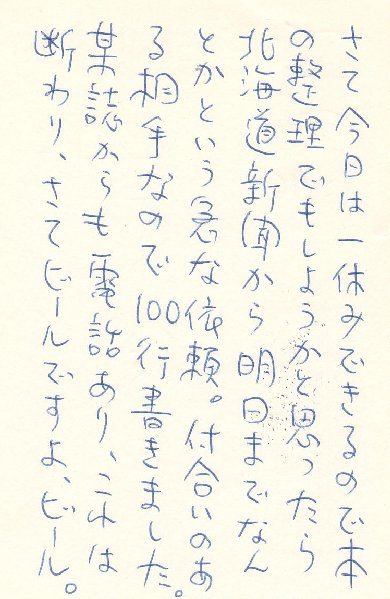 さて今日は一休みできるので本
の整理でもしようかと思ったら
北海道新聞から明日までなん
とかという急な依頼。付合いのあ
る相手なので100行書きました。
某誌からも電話あり、これは
断わり、さてビールですよ、ビール。